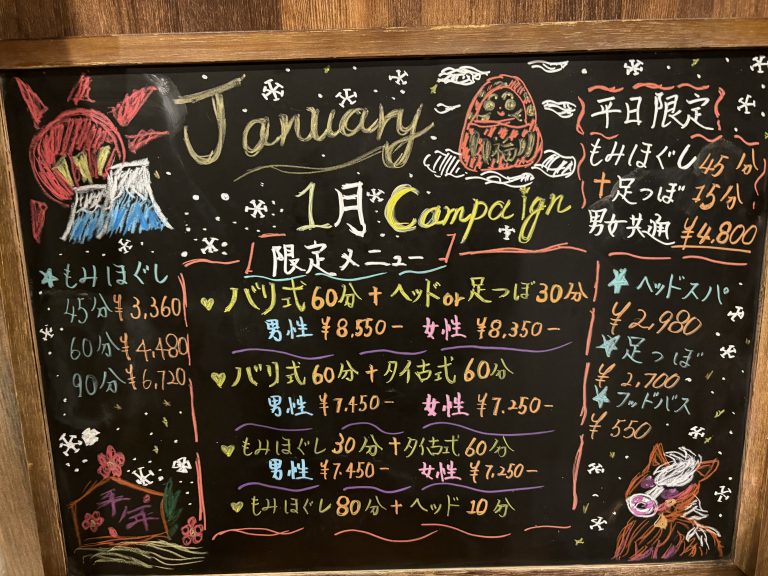 January
1月 Campaign
平日限定
もみほぐし 45分
+足つぼ 15分
男女共通 ¥4,800
限定メニュー
バリ式60分+ヘッドor足つぼ30分
男性 ¥8,550- 女性 ¥8,350-
バリ式60分+タイ古式 60分
男性 ¥7,450- 女性 ¥7,250-
もみほぐし30分+タイ古式 60分
男性 ¥7,450- 女性 ¥7,250-
もみほぐし 80分+ヘッド 10分
もみほぐし
45分 ¥3,360
60分 ¥4,480
90分 ¥6,720
ヘッドスパ
¥2,980
足つぼ
¥2,700-
フッドバス
¥550